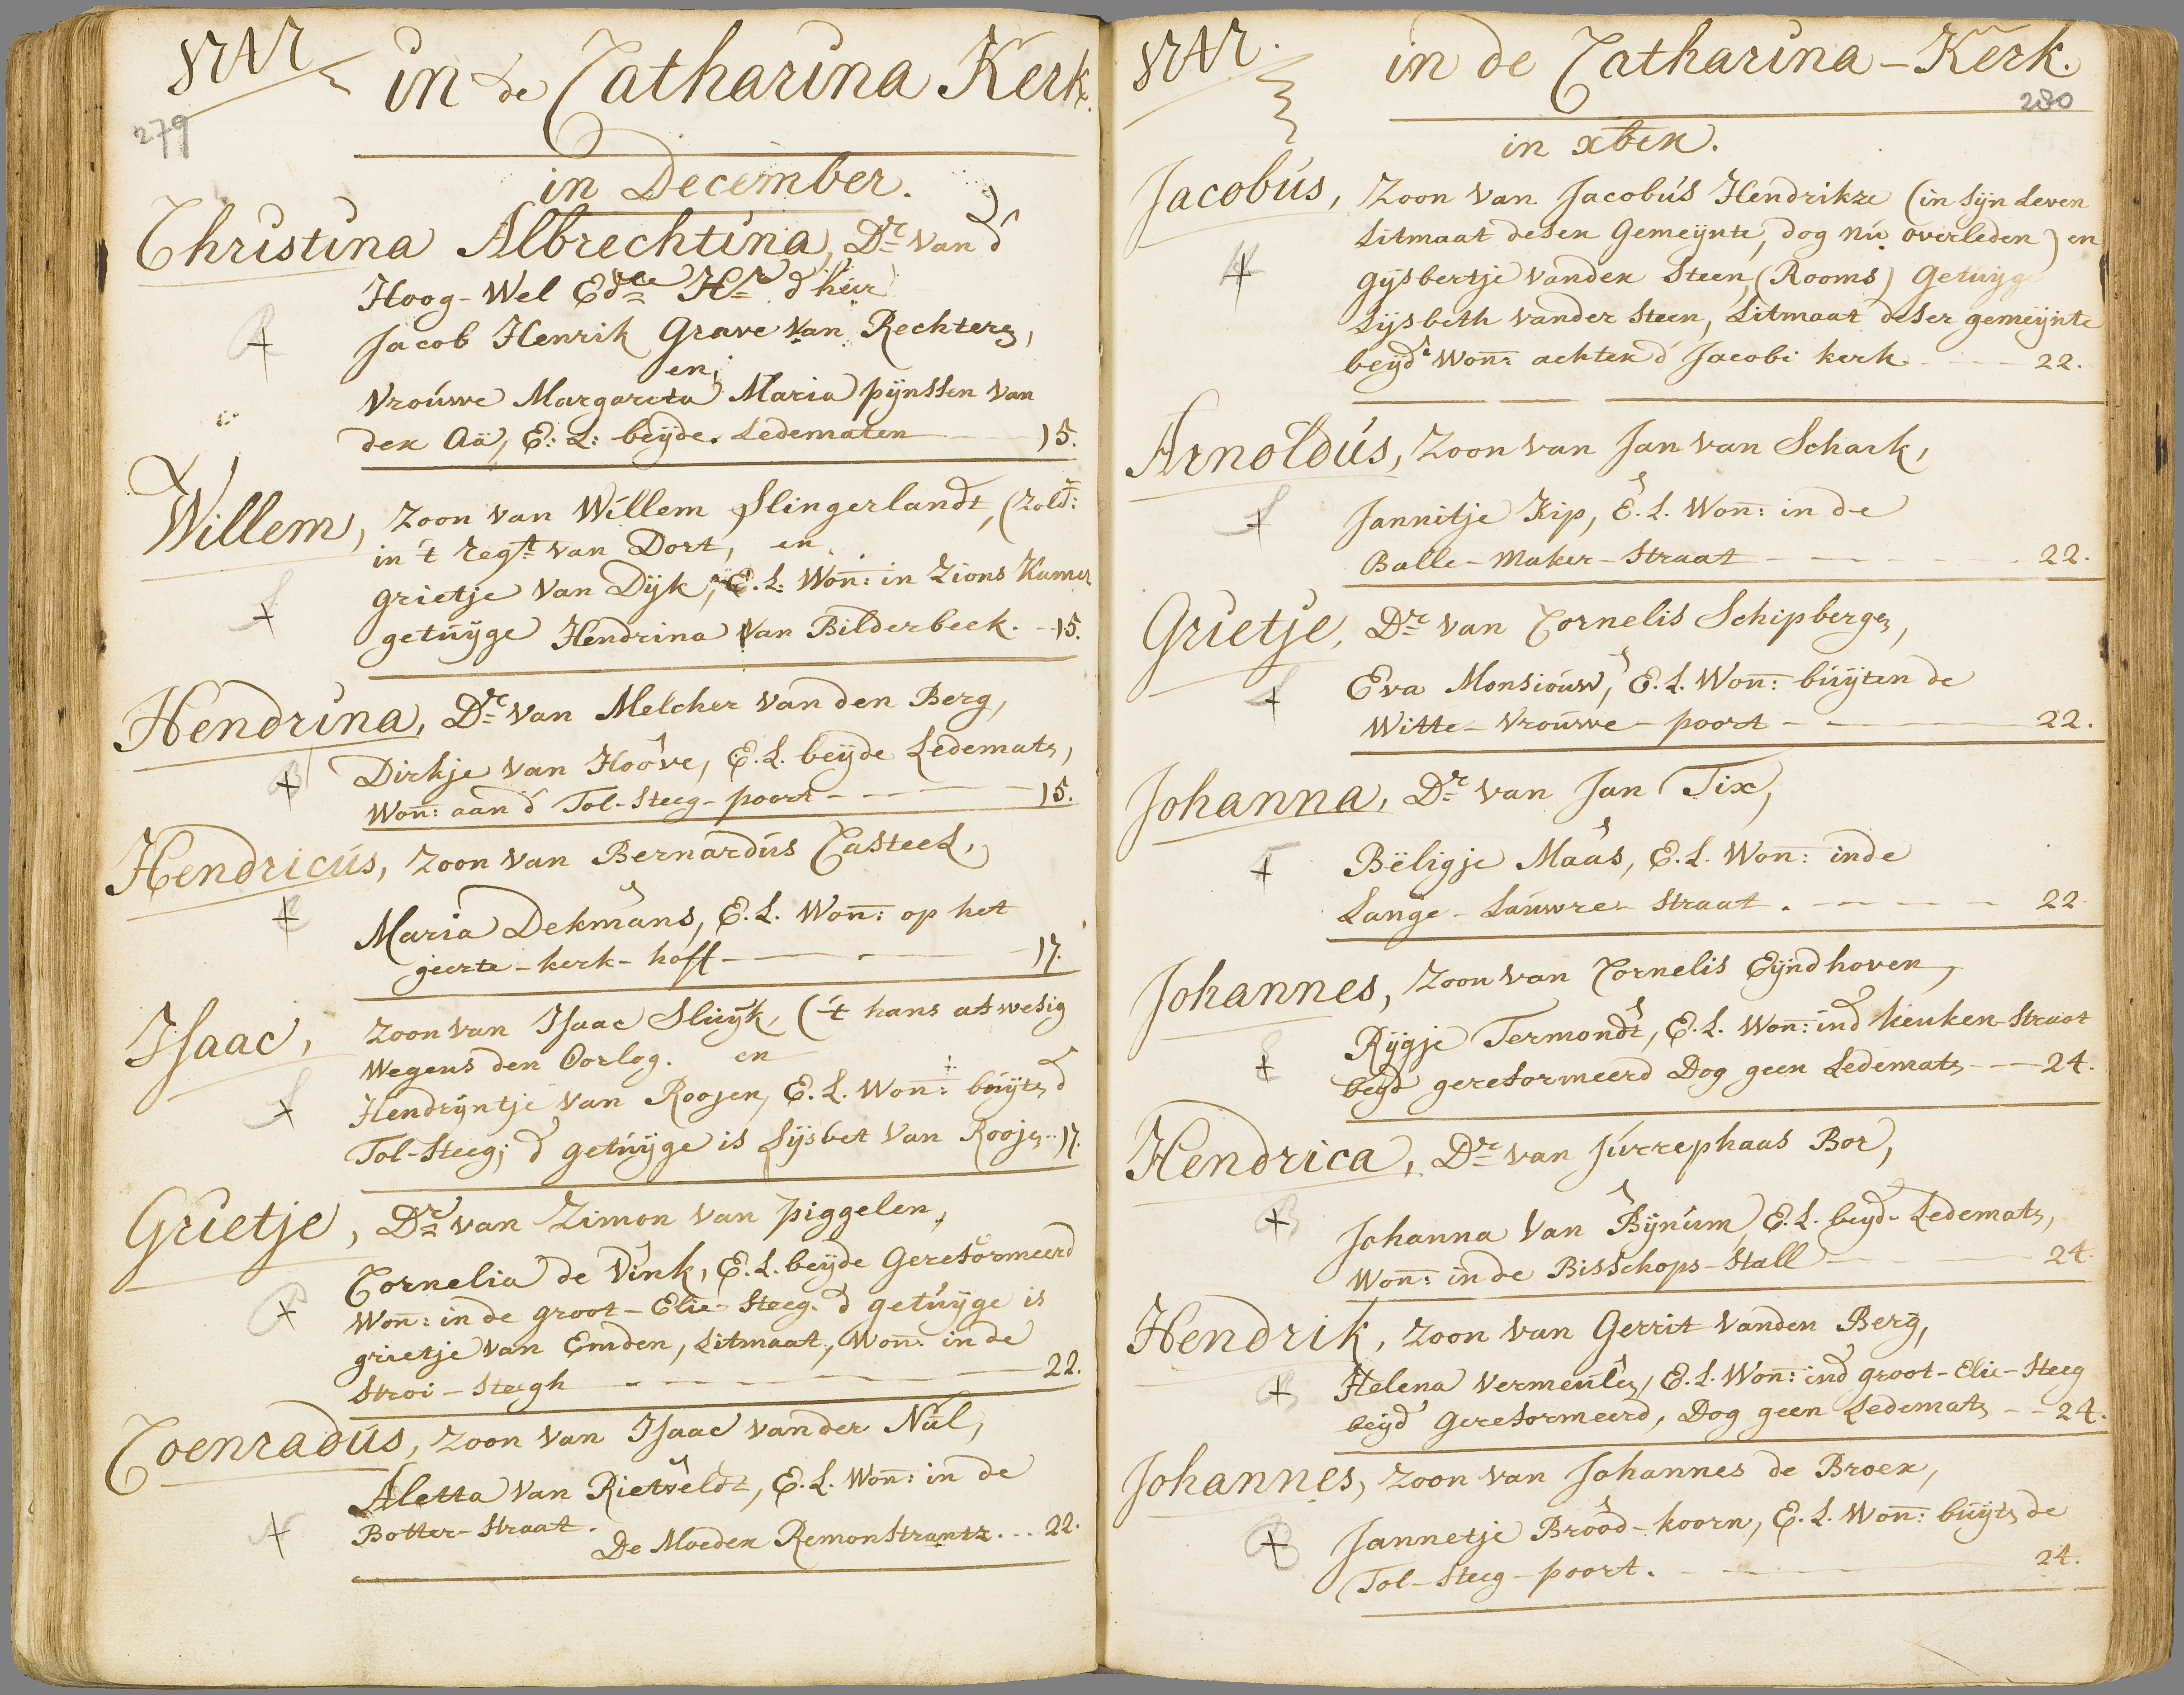 1747
in de Catharina Kerk.
279
in December.
Christina Albrechtina, Dr. van d'
Hoog-Wel Edle Hr d'heer
Jacob Henrik Grave van Rechteren,
en,
Vrouwe Margareta Maria pijnssen van
der Aa, E: L: beijde Ledematen 15.
Willem, Zoon van Willem Slingerlandt, (Zold:
in 't regt van Dort, en
grietje van Dijk, E.L: Won: in Zions Kamer
getuijge Hendrina van Bilderbeek. - 15.
Hendrina, Dr van Melcher van den Berg,
Dirkje van Hoove, E.L. beijde Ledematen,
Won: aan d' Tol-Steeg-poort - - - 15.
Hendricus, Zoon van Bernardus Casteel,
Maria Dekmans, E.L. Won: op het
geerte-kerk-hoff - 17.
Isaac, Zoon van Isaac Sluijk, ('t hans afwesig
Wegens den Oorlog. en
Hendrijntje van Roojen, E.L. Won: buijten d'
Tol-Steeg; d' getuijge is Lijsbet van Roojen - 17.
Grietje, Dr van Zimon van piggelen,
Cornelia de Vink, E.L. beijde Gereformeerd
Won: in de groot-Elie-Steeg. d' getuijge is
grietje van Emden, Litmaat, Won: in de
Stroi-Steegh - - - 22.
Coenradus, Zoon van Isaac vander Nul,
Aletta van Rietveldt, E.L. Won: in de
Botter-Straat. De Moeder Remonstrants. - - 22.
1747.
in de Catharina-Kerk.
280
in xber.
Jacobus, Zoon van Jacobus Hendrikze (in sijn Leven
Litmaat deser Gemeijnte, dog nu overleden) en
Gijsbertje vander Steen, (Rooms) Getuijge
Lijsbeth vander Steen, Litmaat deser gemeijnte
beijde Won: achter d' Jacobi kerk - - - 22.
Arnoldus, Zoon van Jan van Schark,
Jannitje Kip, E.L. Won: in de
Balle-Maker-Straat - - - 22.
Grietje, Dr van Cornelis Schipbergen,
Eva Monsiouw, E.L. Won: buijten de
Witte-Vrouwe-poort - - - 22.
Johanna, Dr van Jan Tix,
Beligje Maas, E.L. Won: inde
Lange-Lauwre-Straat. - - - 22
Johannes, Zoon van Cornelis Eijndhoven,
Rijgje Termondt, E.L. Won: ind' keuken-Straat
beijd gereformeerd Dog geen Ledematen - - 24.
Hendrica, Dr van Jurrephaas Bor,
Johanna van Bijnum, E.L. beijde Ledematen,
Won: in de Bisschops-Stall - - 24.
Hendrik, Zoon van Gerrit vanden Berg,
Helena Vermeulen, E.L. Won: ind' groot-Elie-Steeg
beijd' Gereformeerd, Dog geen Ledematen - - 24.
Johannes, Zoon van Johannes de Broer,
Jannetje Brood-koorn, E.L. Won: buijten de
Tol-Steeg-poort. - - - 24.